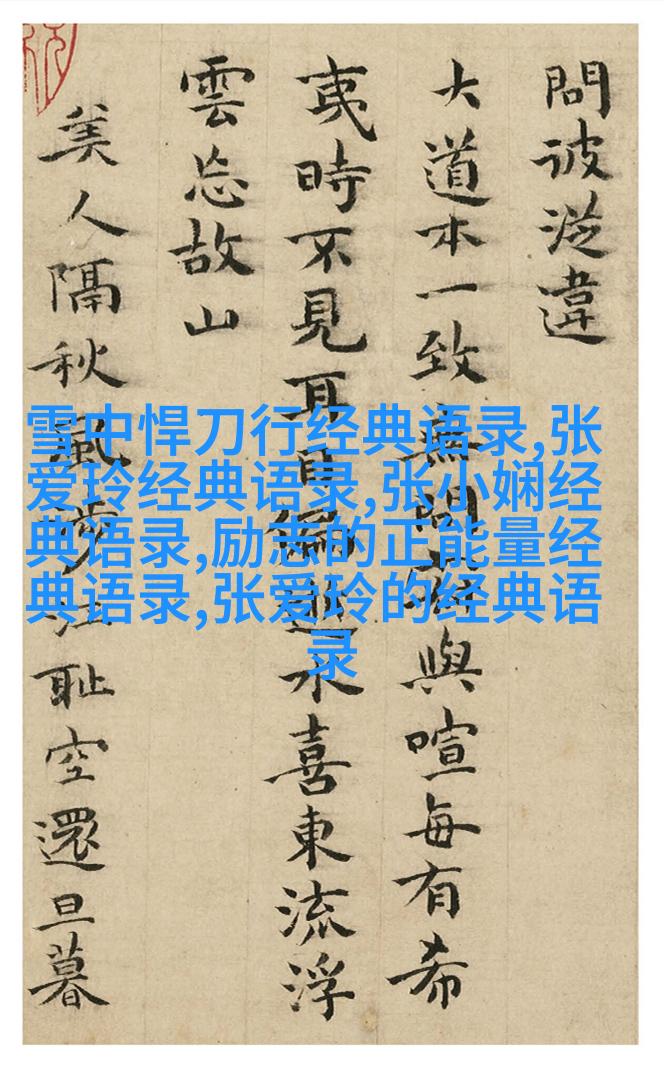 問彼從違
大道本一致無問與喧每有希
夷時不見耳目逝水喜東流浮
雲忘故山
美人隔秋風涉江耻空還旦暮
雪中悍刀行经典语录,张
爱玲经典语录,张小娴经
典语录,励志的正能量经
典语录,张爱玲的经典语
录